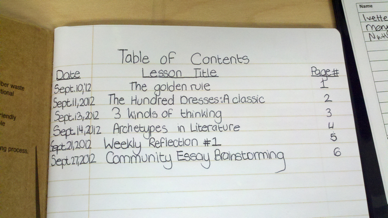 Table of Contents
Date Lesson Title Page#
Sept.10,12 The golden rule 1
Sept.11,2012 The Hundred Dresses:A classic 2
Sept.13,2012 3 kinds of thinking 3
Sept.14,2012 Archetypes in Literature 4
Sept.21,2012 Weekly Reflection #1 5
Sept.27,2012 Community Essay Brainstorming 6
Name